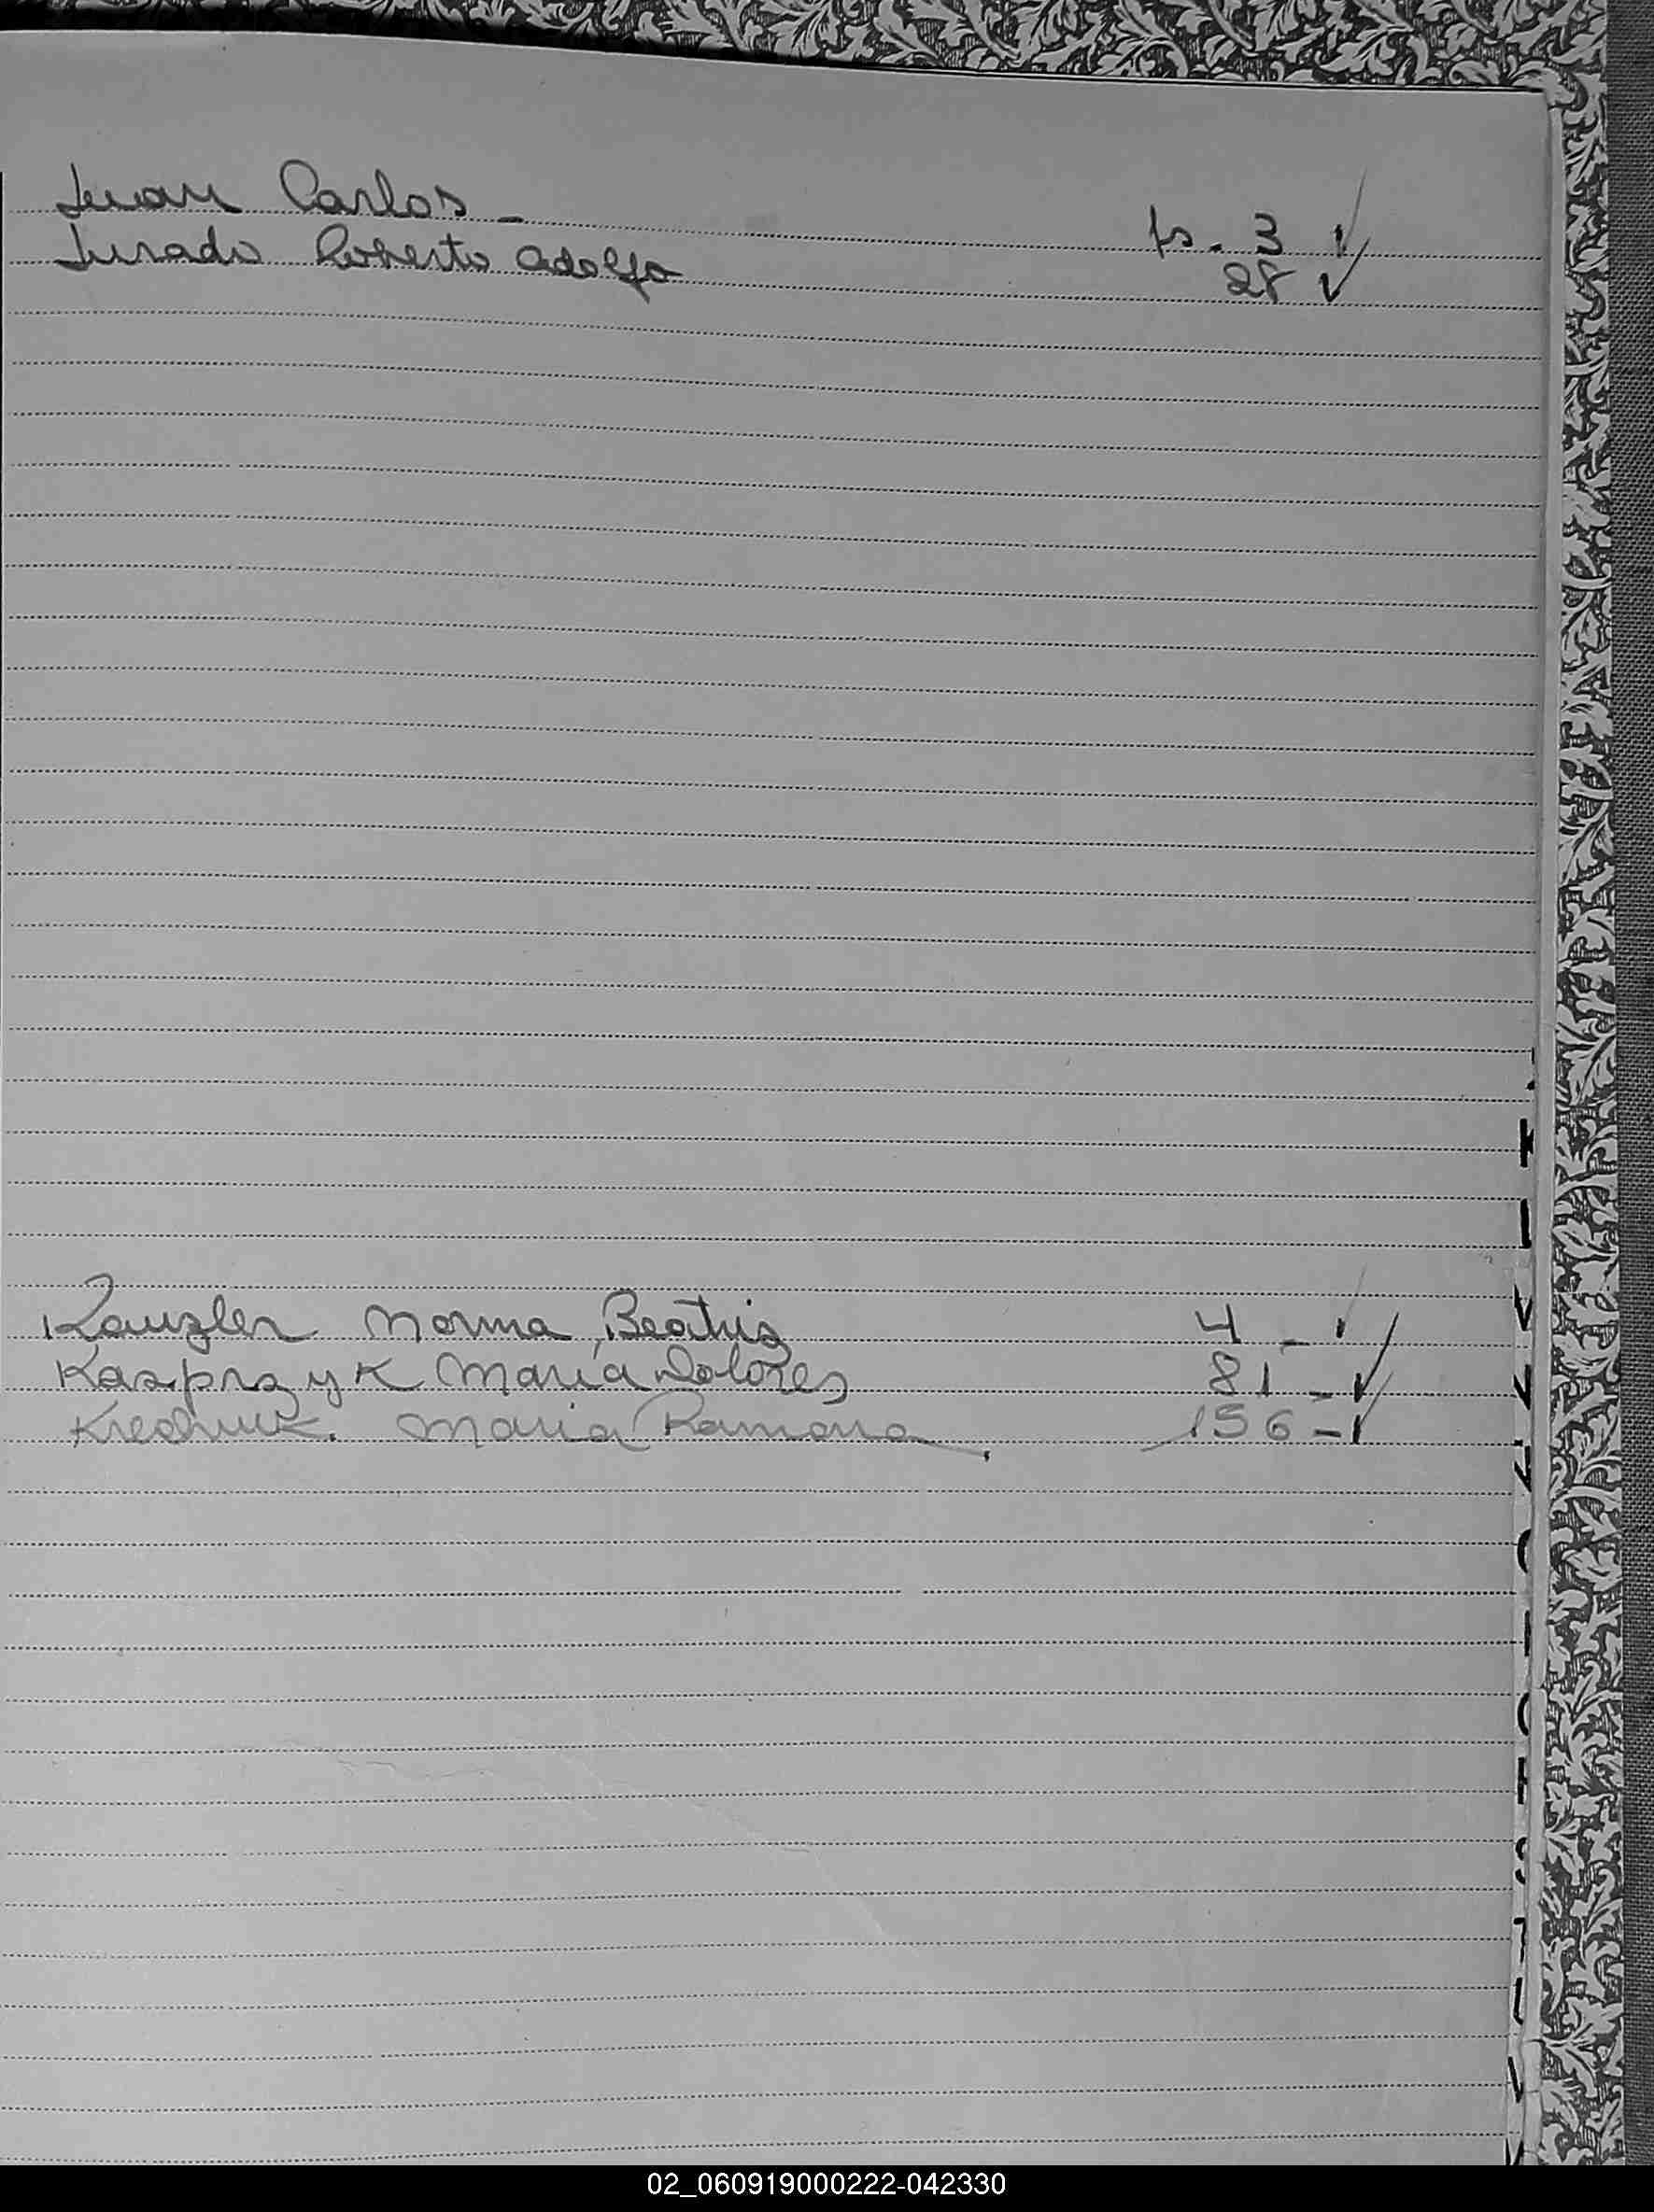 Juan Carlos - fs. 3 ✓
Jurado Roberto Adolfo 28 ✓
Kauzler Norma Beatriz 4 - ✓
Kasprzyk María Dolores 81 - ✓
Maria Ramona. 156 - ✓
02_060919000222-042330